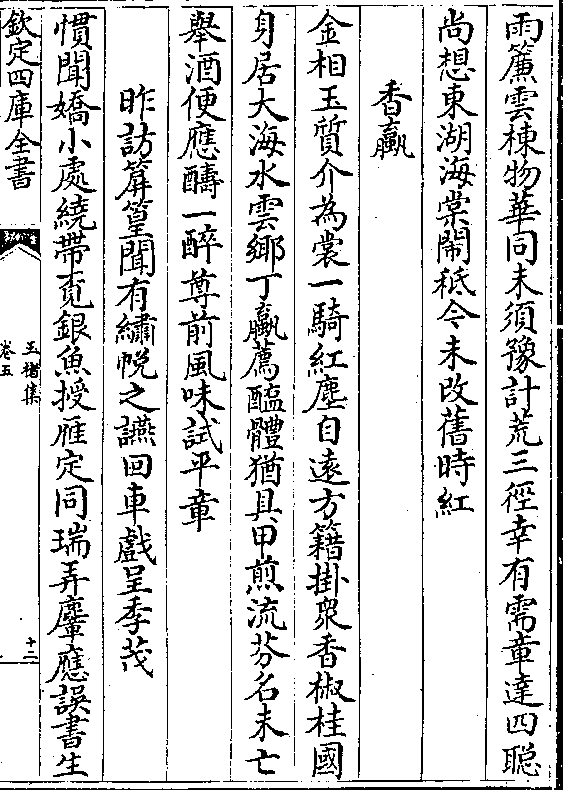 雨簾雲棟物華同未須豫計荒三徑幸有需章達四聰
尚想東湖海棠鬧秪今未改舊時紅
香蠃
金相玉質介為裳一騎紅塵自遠方籍掛衆香椒桂國
身居大海水雲鄉丁蠃薦醢體猶具甲煎流芬名未亡
舉酒便應醻一醉尊前風味試平章
昨訪屛篁聞有繡帨之讌回車戲呈季茂
慣聞嬌小處繞帶覔銀魚授雁定同瑞弄麞應誤書生
欽定四庫全書
玉楮集
卷五
十二